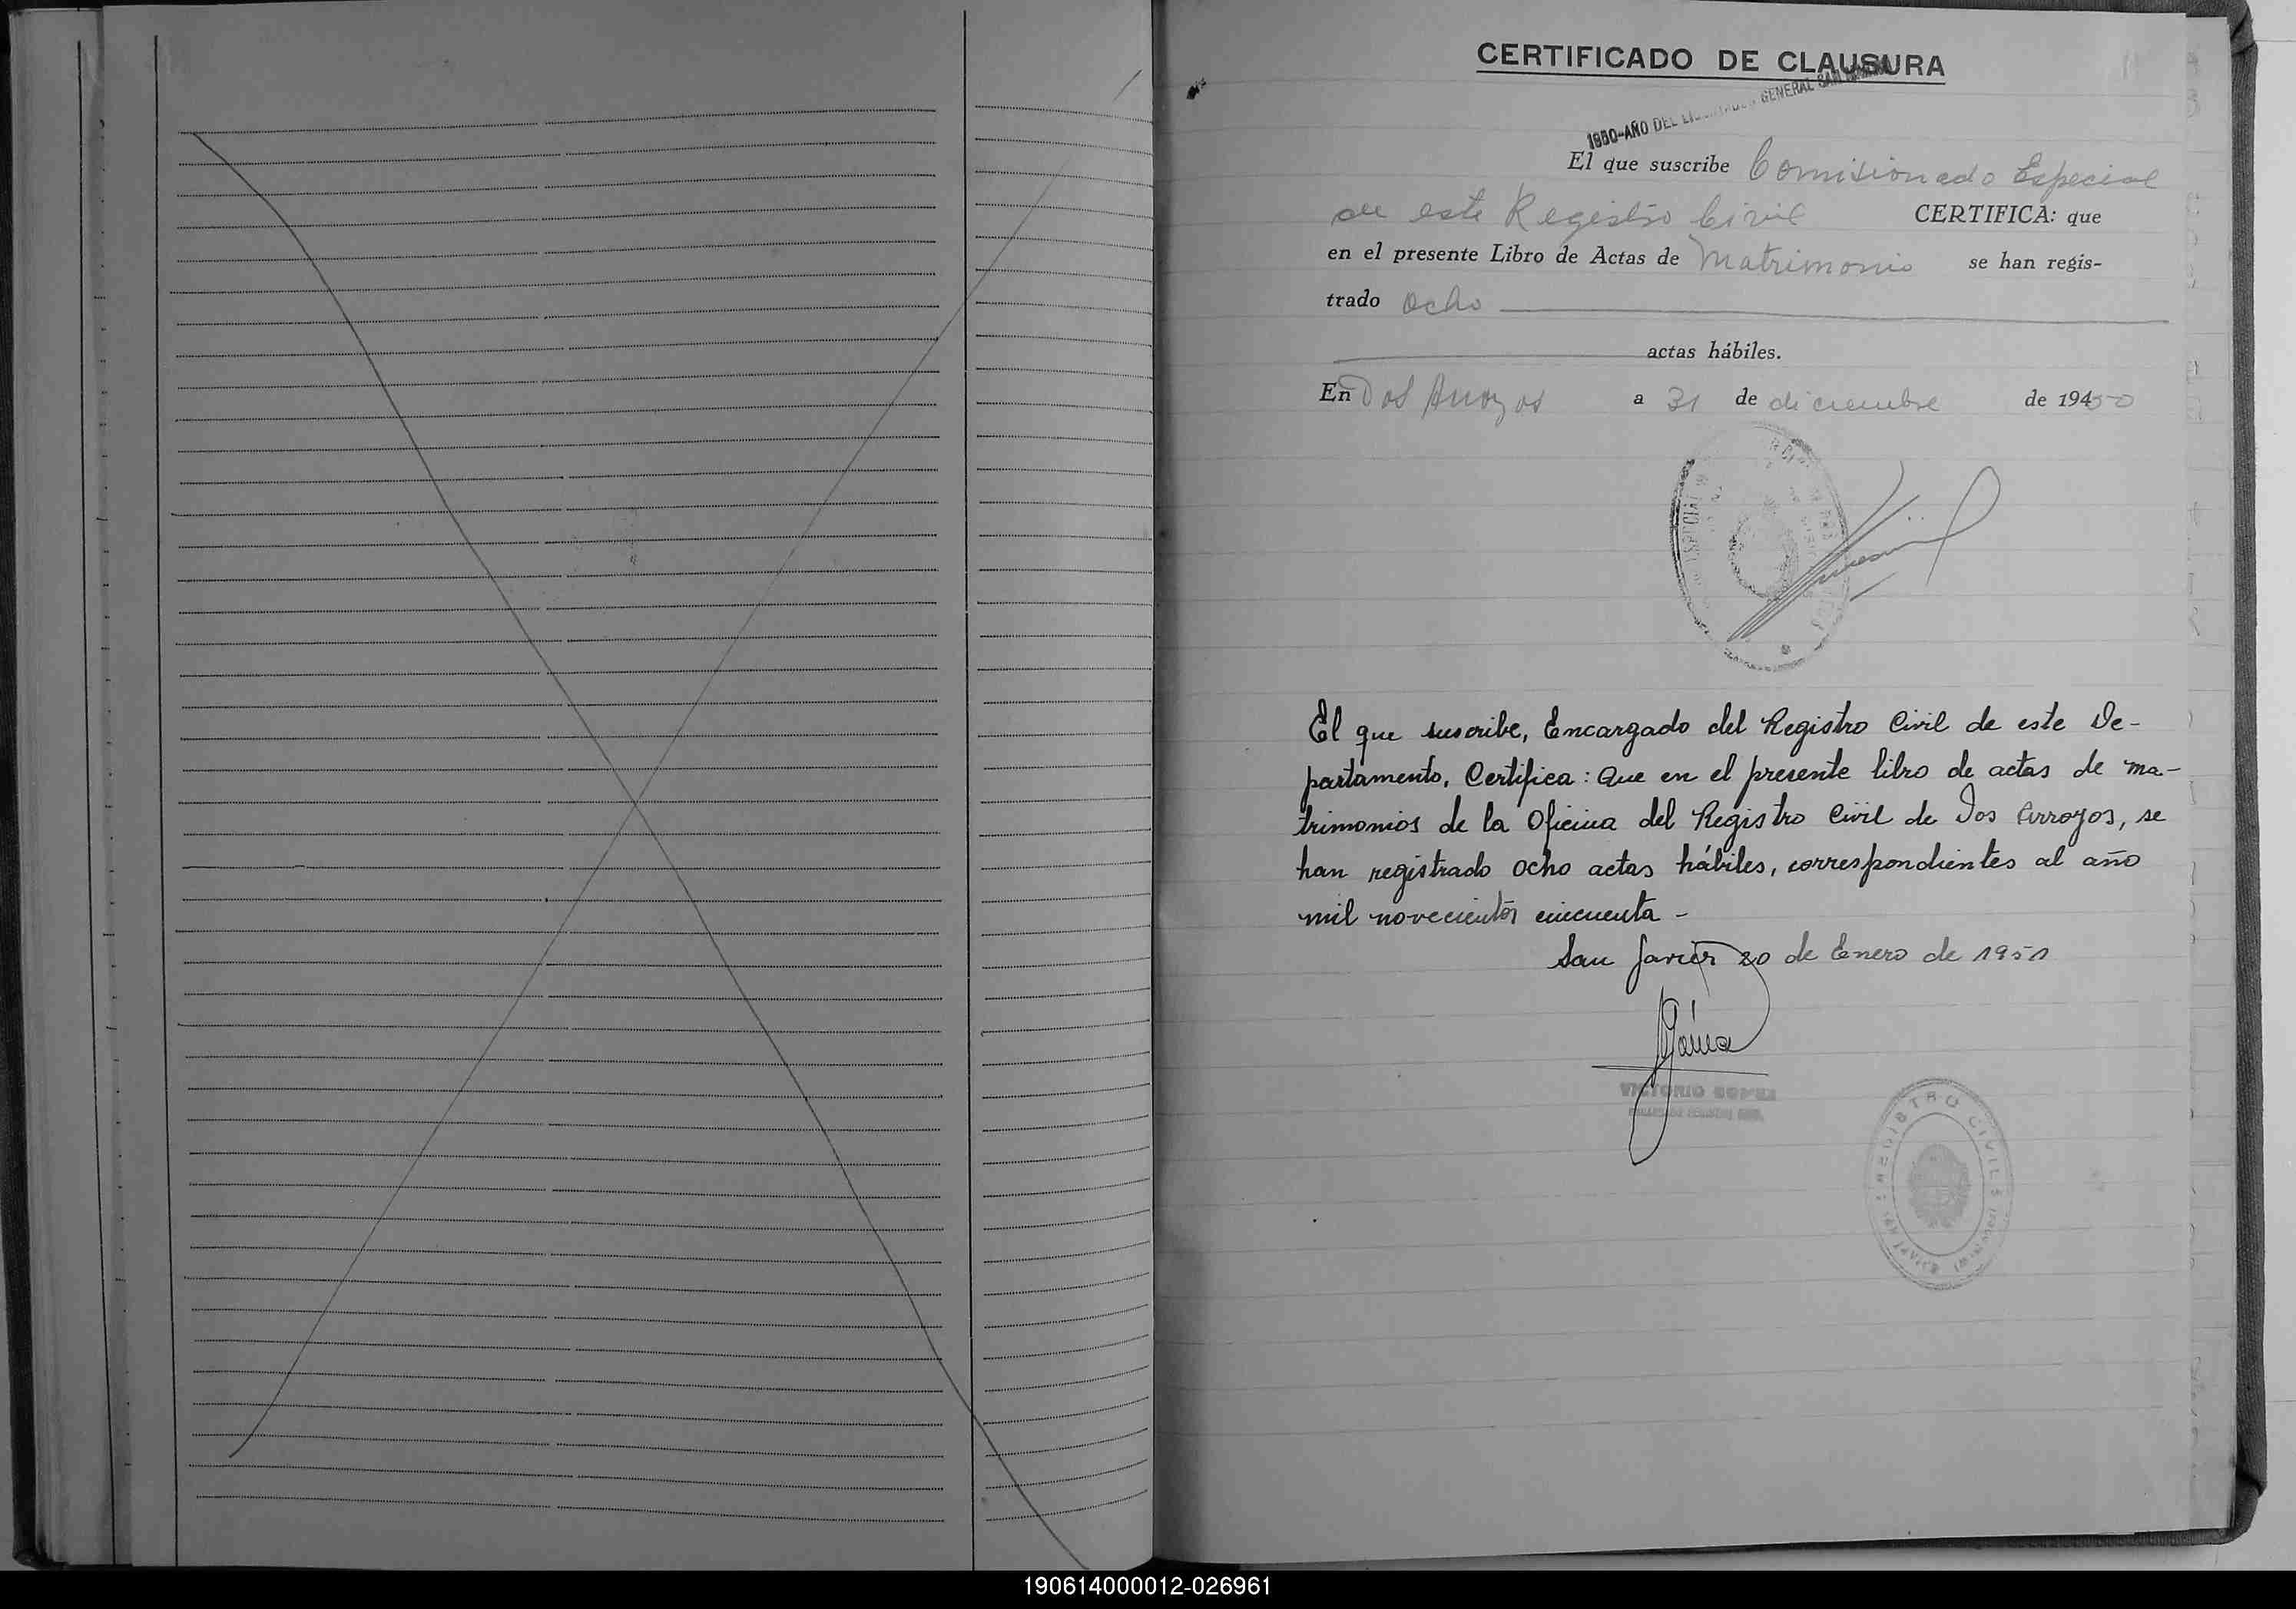 CERTIFICADO DE CLAUSURA
1950-AÑO DEL LIBERTADOR GENERAL SAN MARTIN
El que suscribe Comisionado Especial
de este Registro Civil CERTIFICA: que
en el presente Libro de Actas de Matrimonio se han regis-
trado Ocho
actas hábiles.
En Dos Arroyos a 31 de diciembre de 19450
El que suscribe, Encargado del Registro Civil de este De-
partamento, Certifica: Que en el presente libro de actas de ma-
trimonios de la Oficina del Registro Civil de Dos Arroyos, se
han registrado ocho actas hábiles, correspondientes al año
mil novecientos cincuenta -
San Javier 20 de Enero de 1951
VICTORIO
REGISTRO CIVIL
SAN JAVIER (Misiones)
190614000012-026961